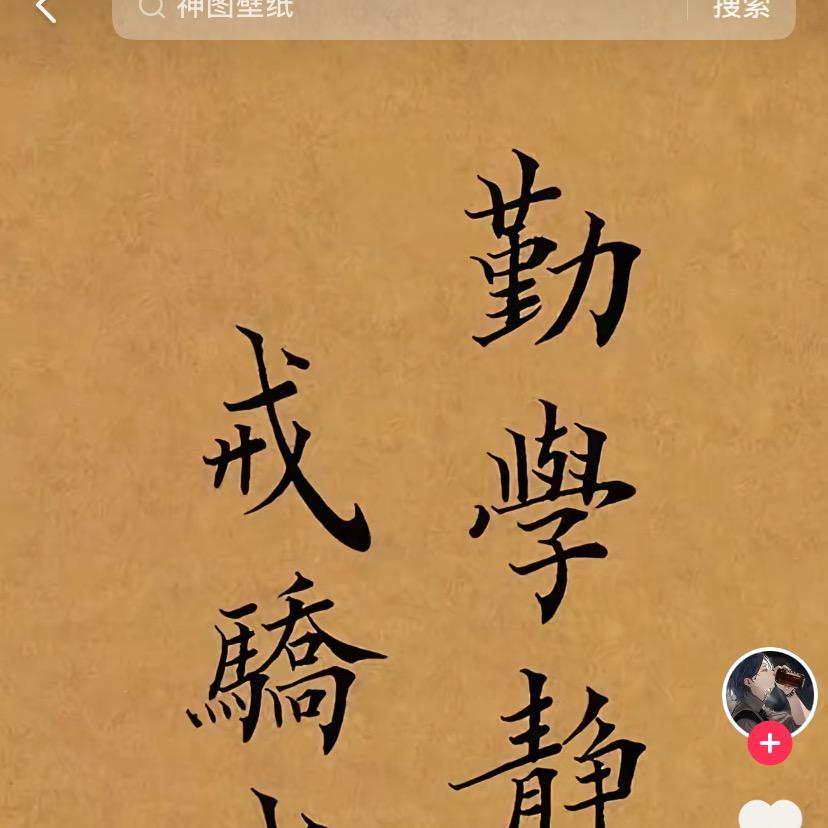 神图壁纸
搜索
勤學静
戒驕